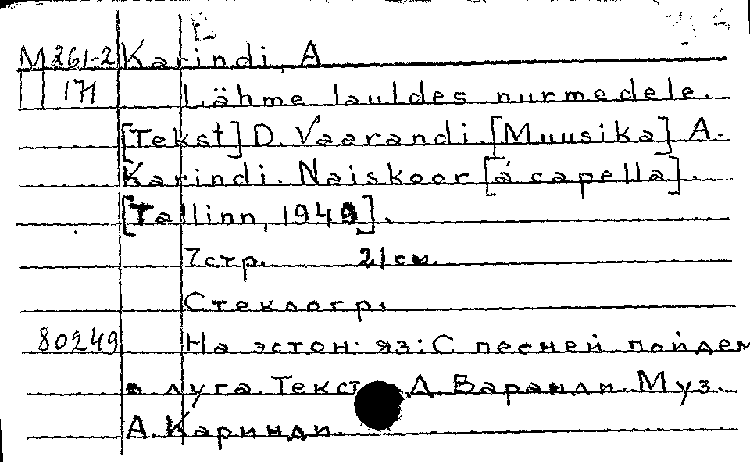 М 261-2 Karindi, A
171 Lähme lauldes nurmedele.
[Tekst] D. Vaarandi. [Muusika] A.
Karindi. Naiskoor [á capella].
[Tallinn, 1949].
7 стр. 21 см.
Стеклогр.
80249 На эстон. яз: С песней пойдем
в луга. Текст Д. Варанди. Муз.
А. Каринди.